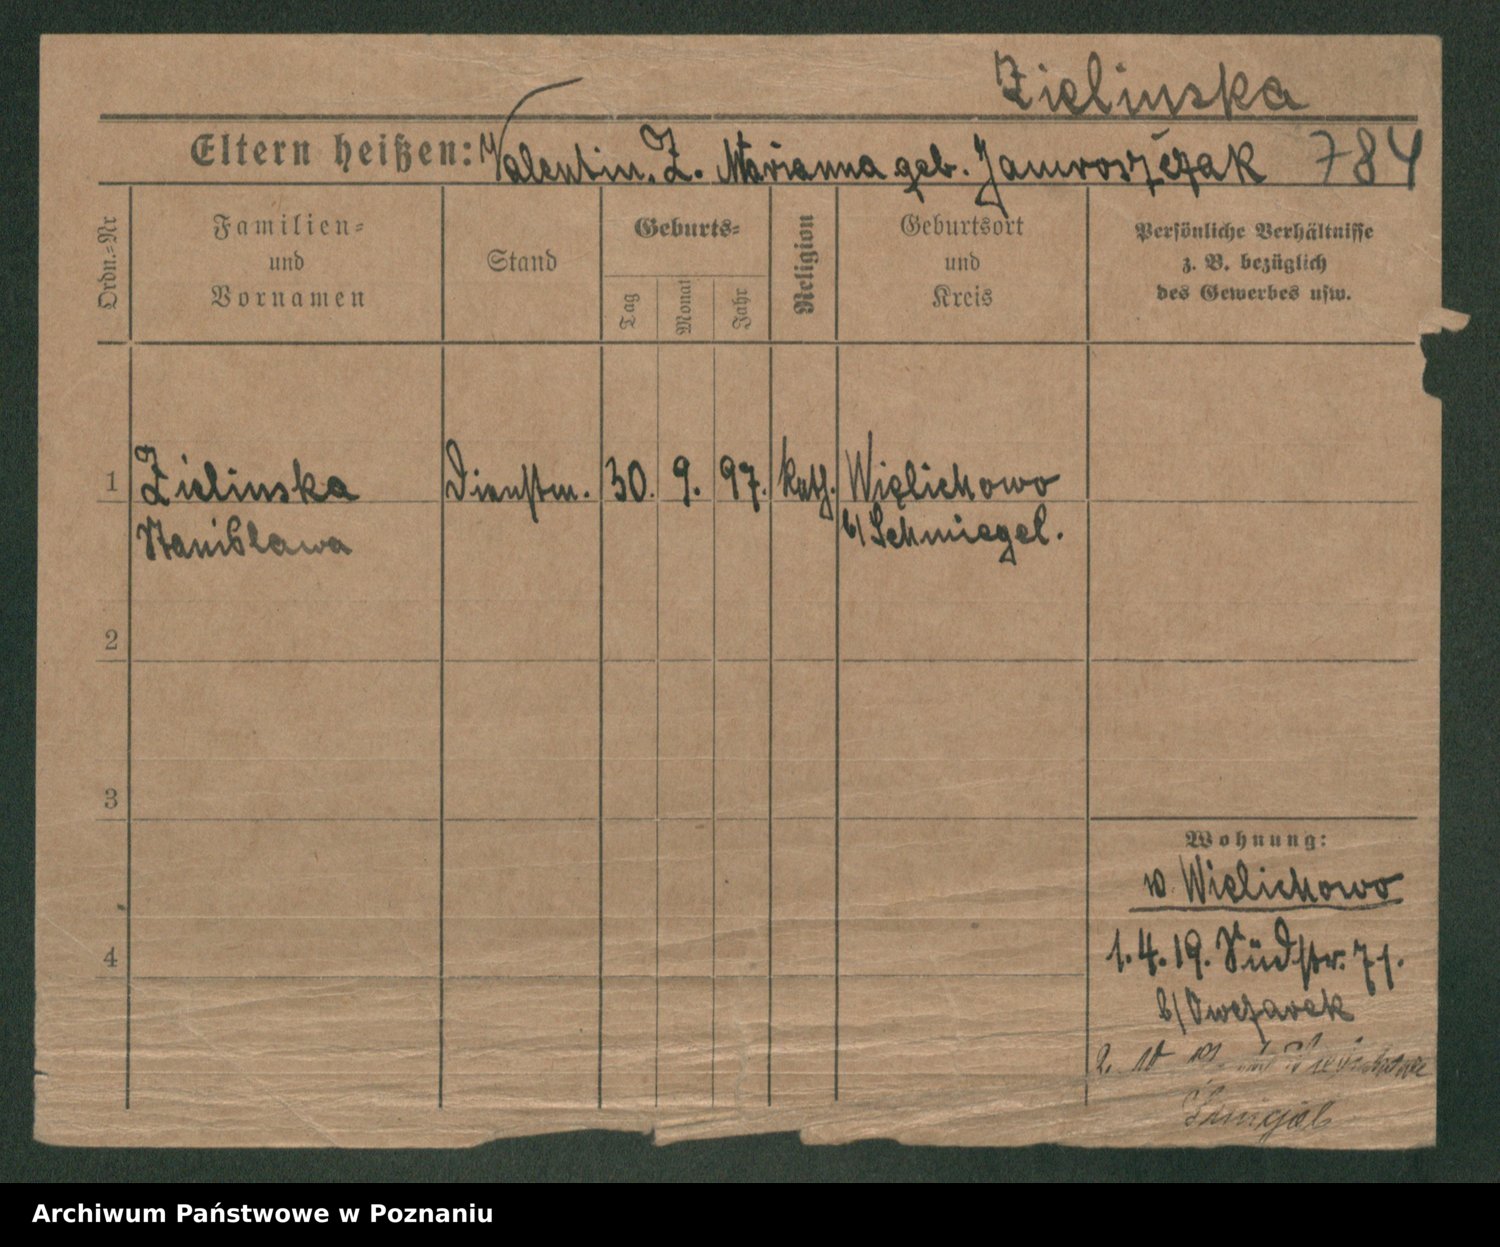 Zielinska
Eltern heißen: Valentin. Z. Marianna geb. Jamroszczak 784
Ordn.-Nr
Familien-
und
Vornamen
Stand
Geburts-
Tag
Monat
Jahr
Religion
Geburtsort
und
Kreis
Persönliche Verhältnisse
z. B. bezüglich
des Gewerbes usw.
1 Zielinska Dienstm. 30. 9. 97. kath. Wielichowo
Stanislawa b/ Schmiegel.
2
3
Wohnung:
v. Wielichowo
4
1.4.19. Südstr. 71.
b/ Owczarek
2. 10
Archiwum Państwowe w Poznaniu